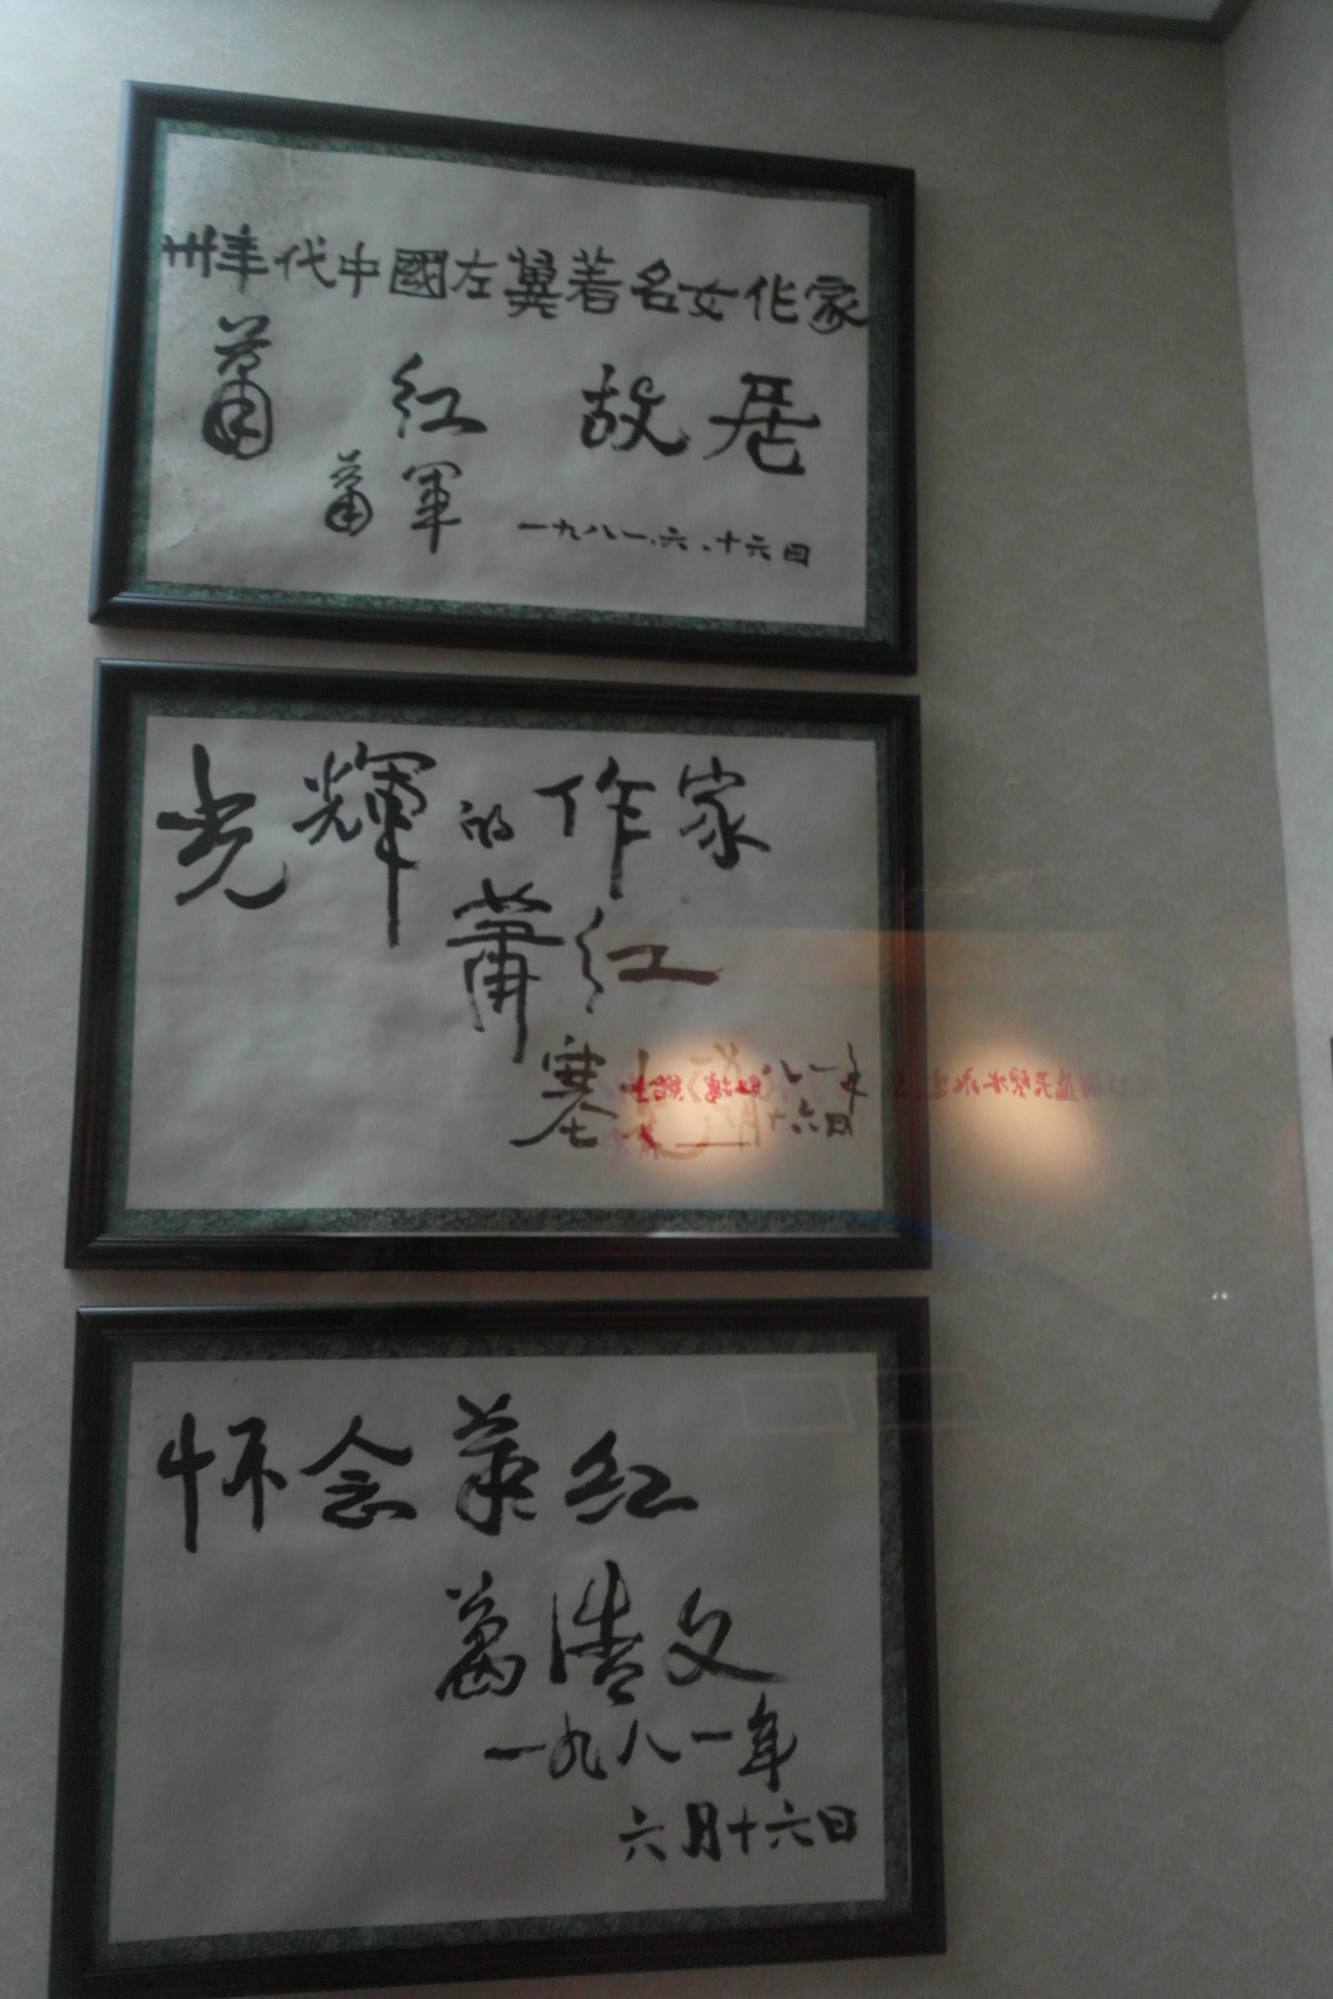 卅年代中國左翼著名女作家
蕭紅故居
蕭軍 一九八一.六.十六日
光輝的作家
蕭紅
塞 八一年
月十六日
怀念萧红
葛浩文
一九八一年
六月十六日